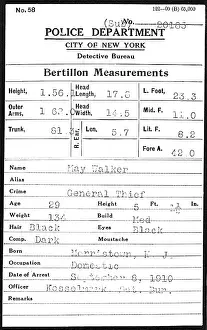 No. 58 102—09 (B) 65,000
(Sub) No. 20165
POLICE DEPARTMENT
CITY OF NEW YORK
Detective Bureau
Bertillon Measurements
Height, 1.56. Head Length, 17.8 L. Foot, 23.3
Outer Arms, 1 Head Width, 14.5 Mid. F.
Trunk, 81 R. Ear, Len, 5.7 Lit. F. 8.2
Fore A. 42.0
Name May Walker
Alias
Crime General Thief
Age 29 Height 5 Ft. In.
Weight 134 Build Med
Hair Black Eyes Black
Comp. Dark Moustache
Born Morristown, N. J.
Occupation Domestic
Date of Arrest September 6, 1910
Officer Kesselmark, Det. Bur.
Remarks